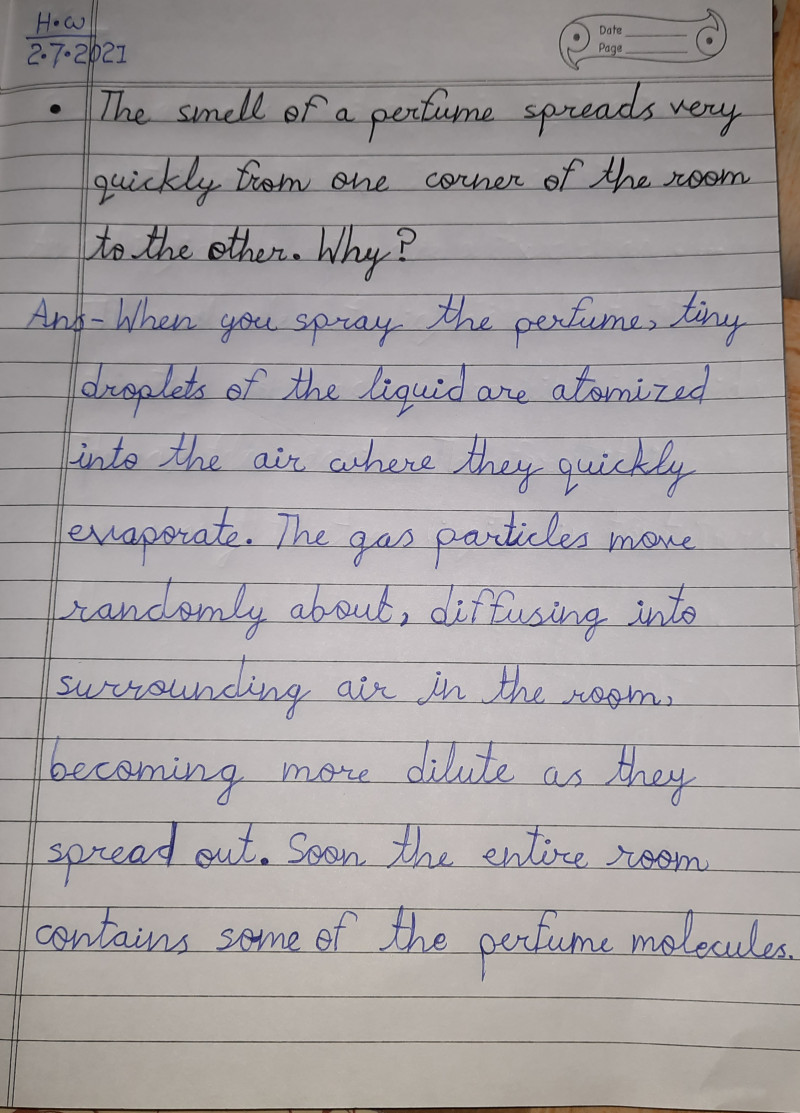 H.W
2.7.2021
Date
Page
• The smell of a perfume spreads very
quickly from one corner of the room
to the other. Why?
Ans- When you spray the perfume, tiny
droplets of the liquid are atomized
into the air where they quickly
evaporate. The gas particles move
randomly about, diffusing into
surrounding air in the room,
becoming more dilute as they
spread out. Soon the entire room
contains some of the perfume molecules.